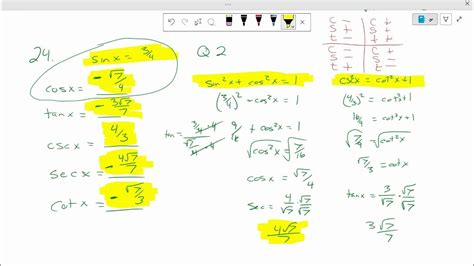 24.
sin x = 3/4
cos x = -√7/4
tan x = -3√7/7
csc x = 4/3
sec x = -4√7/7
cot x = -√7/3
Q2
sin²x + cos²x = 1
(3/4)² + cos²x = 1
9/16 + cos²x = 1
√cos²x = √7/16
cos x = √7/4
sec = 4/√7 · √7/√7
4√7/7
csc²x = cot²x + 1
(4/3)² = cot²x + 1
16/9 = cot²x + 1
√7/9 = √cot²x
√7/3 = cot x
tan x = 3/√7 · √7/√7
3√7/7